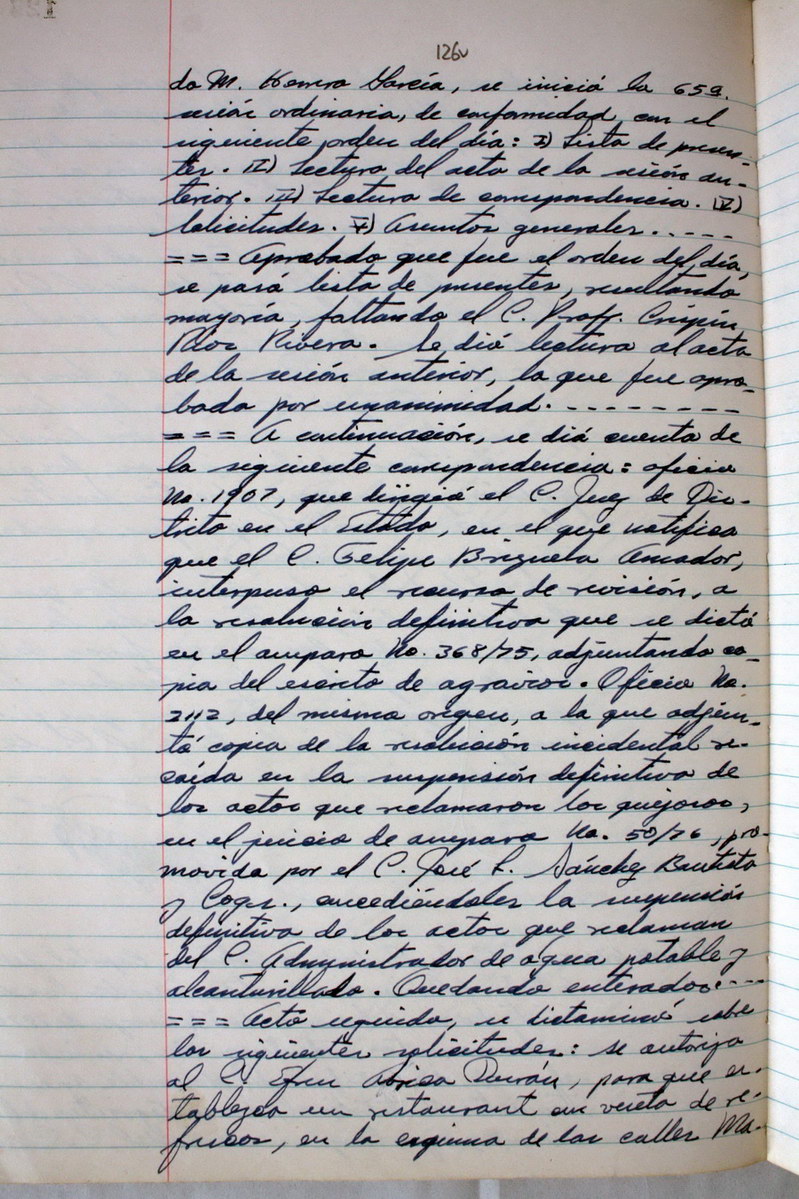 126v
do M. Herrera García, se inició la 65a.
sesión ordinaria, de conformidad con el
siguiente orden del día: I) Lista de presen-
tes. II) Lectura del acta de la sesión an-
terior. III) Lectura de correspondencia. IV)
Solicitudes. V) Asuntos generales. - - - -
= = = Aprobado que fue el orden del día,
se pasó lista de presentes, resultando
mayoría, faltando el C. Profr. Crispín
Ríos Rivera. Se dió lectura al acta
de la sesión anterior, la que fue apro-
bada por unanimidad. - - - - - - - -
= = = A continuación, se dió cuenta de
la siguiente correspondencia: oficio
No. 1907, que dirigió el C. Juez de Dis-
trito en el Estado, en el que notifica
que el C. Felipe Brizuela Amador,
interpuso el recurso de revisión, a
la resolución definitiva que se dictó
en el amparo No. 368/75, adjuntando co-
pia del escrito de agravios. Oficio No.
2112, del mismo origen, a la que adjun-
tó copia de la resolución incidental re-
caída en la suspensión definitiva de
los actos que reclamaron los quejosos,
en el juicio de amparo No. 50/76, pro-
movida por el C. José L. Sánchez Bautista
y Cogs., concediéndoles la suspensión
definitiva de los actos que reclaman
del C. Administrador de agua potable y
alcantarillado. Quedando enterados. - - -
= = = Acto seguido, se dictaminó sobre
las siguientes solicitudes: se autoriza
al C. Efren Durán, para que es-
tablezca un restaurant con venta de re-
frescos, en la esquina de las calles Ma-